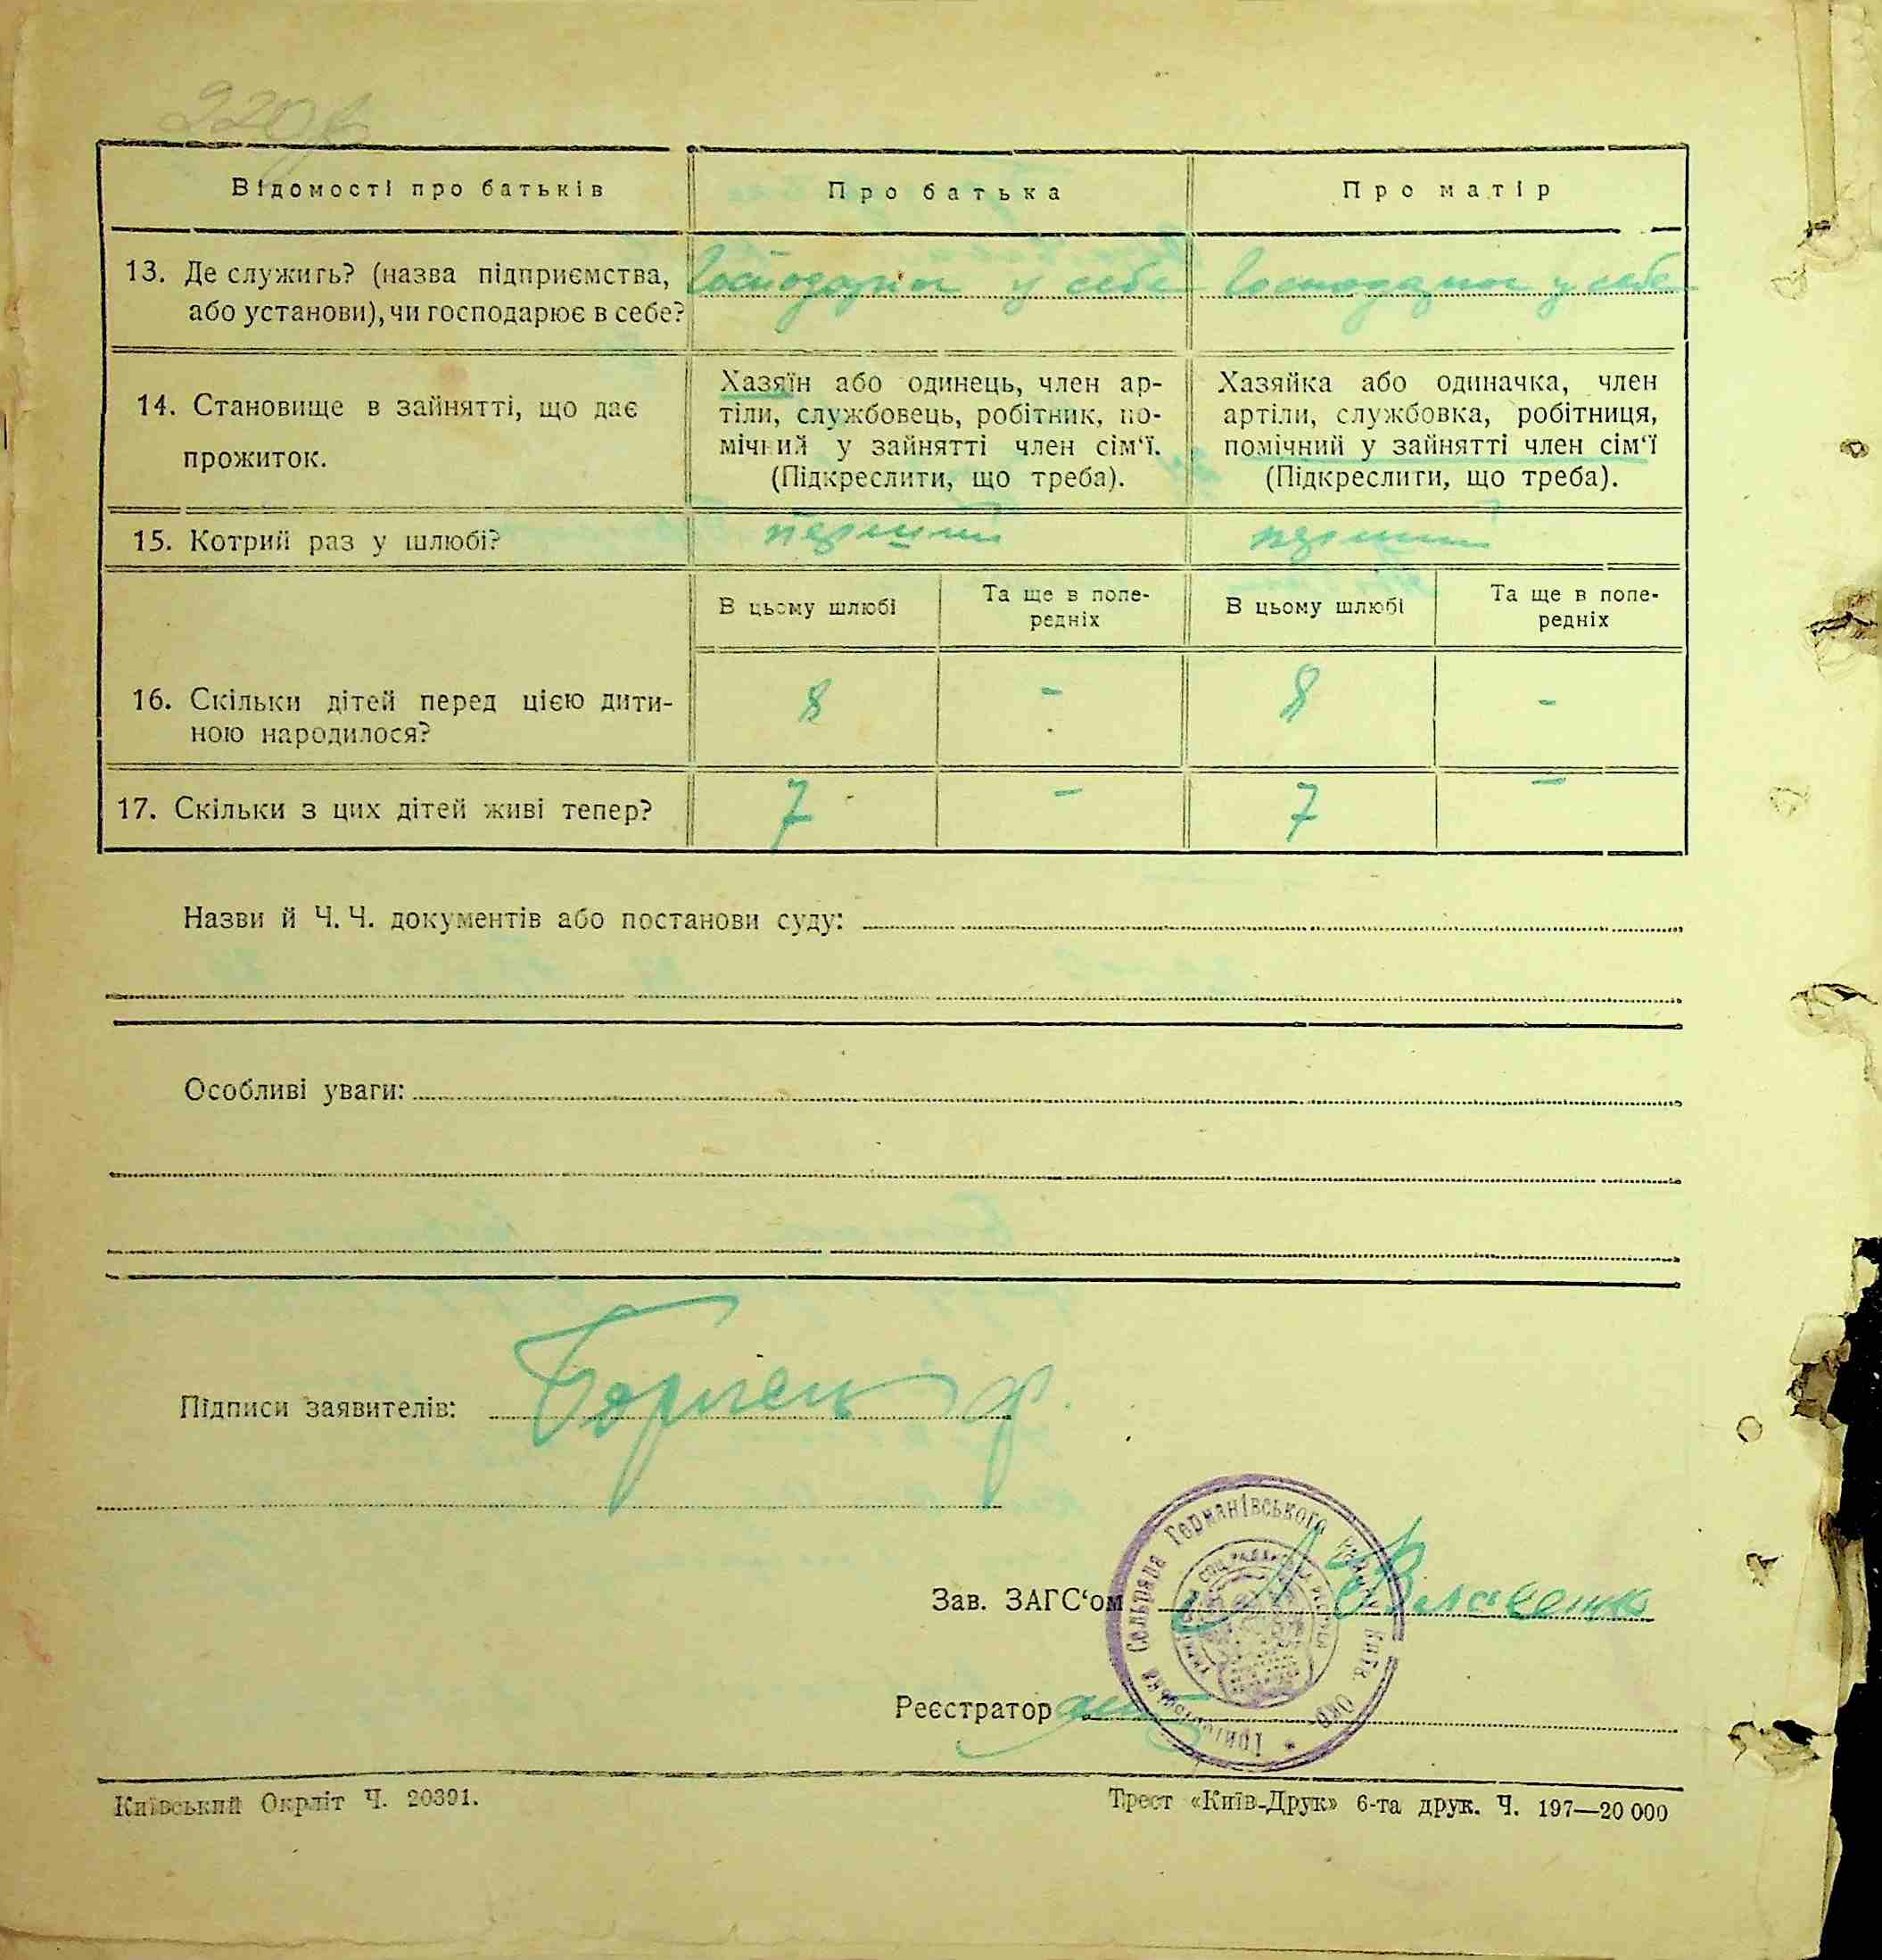 220
Відомості про батьків
Про батька
Про матір
13. Де служить? (назва підприємства,
або установи), чи господарює в себе?
Господарює у себе
Господарює у себе
14. Становище в зайнятті, що дає
прожиток.
Хазяїн або одинець, член ар-
тіли, службовець, робітник, по-
мічний у зайнятті член сім‘ї.
(Підкреслити, що треба).
Хазяйка або одиначка, член
артіли, службовка, робітниця,
помічний у зайнятті член сім‘ї
(Підкреслити, що треба).
15. Котрий раз у шлюбі?
перший
перший
В цьому шлюбі
Та ще в попе-
редніх
В цьому шлюбі
Та ще в попе-
редніх
16. Скільки дітей перед цією дити-
ною народилося?
8
-
8
-
17. Скільки з цих дітей живі тепер?
7
-
7
-
Назви й Ч. Ч. документів або постанови суду:
Особливі уваги:
Підписи заявителів:
Зав. ЗАГС‘ом
Сельрада Германівського району Київ. Окр.
Реєстратор
Київський Окрліт Ч. 20391.
Трест «Київ-Друк» 6-та друк. Ч. 197—20 000